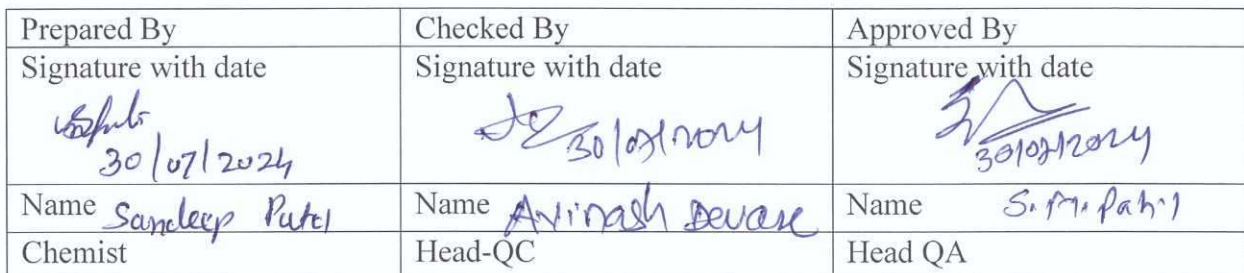 Prepared By Checked By Approved By
Signature with date Signature with date Signature with date
30/07/2024 30/07/2024 30/07/2024
Name Sandeep Patel Name Avinash Devase Name S. M. Patil
Chemist Head-QC Head QA